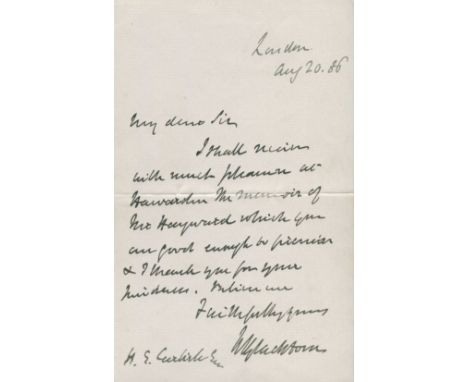 London
Aug 20. 86
My dear Sir
I shall receive
with much pleasure at
Hawarden the memoir of
Mr Hayward which you
are good enough to promise
& I thank you for your
kindness. Believe me
Faithfully yours
WEGladstone
H. E. Carlisle Esq